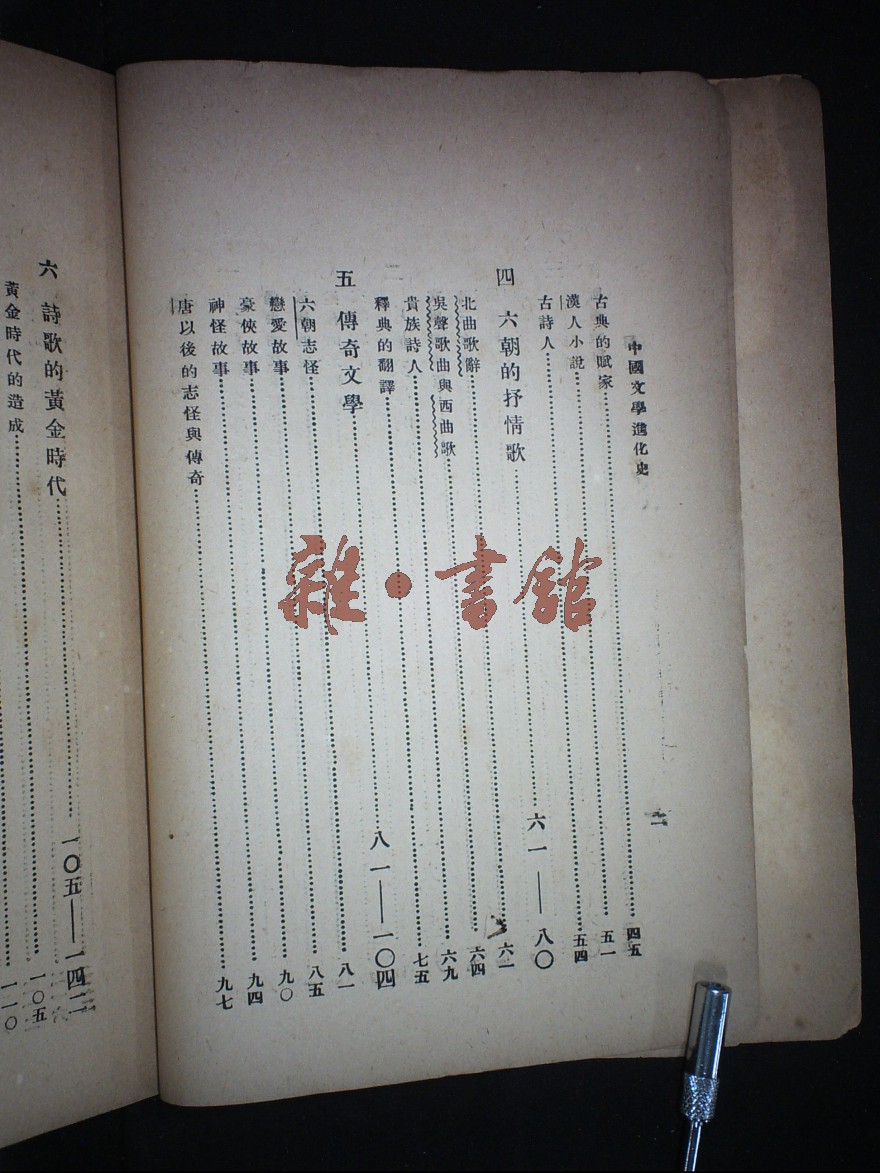 中國文學進化史 二
古典的賦家……四五
漢人小說……五一
古詩人……五四
四 六朝的抒情歌……六一——八〇
北曲歌辭……六一
吳聲歌曲與西曲歌……六四
貴族詩人……六九
釋典的翻譯……七五
五 傳奇文學……八一——一〇四
六朝志怪……八一
戀愛故事……八五
豪俠故事……九〇
神怪故事……九四
唐以後的志怪與傳奇……九七
六 詩歌的黃金時代……一〇五——一四二
黃金時代的造成……一〇五
一一〇
雜·書館